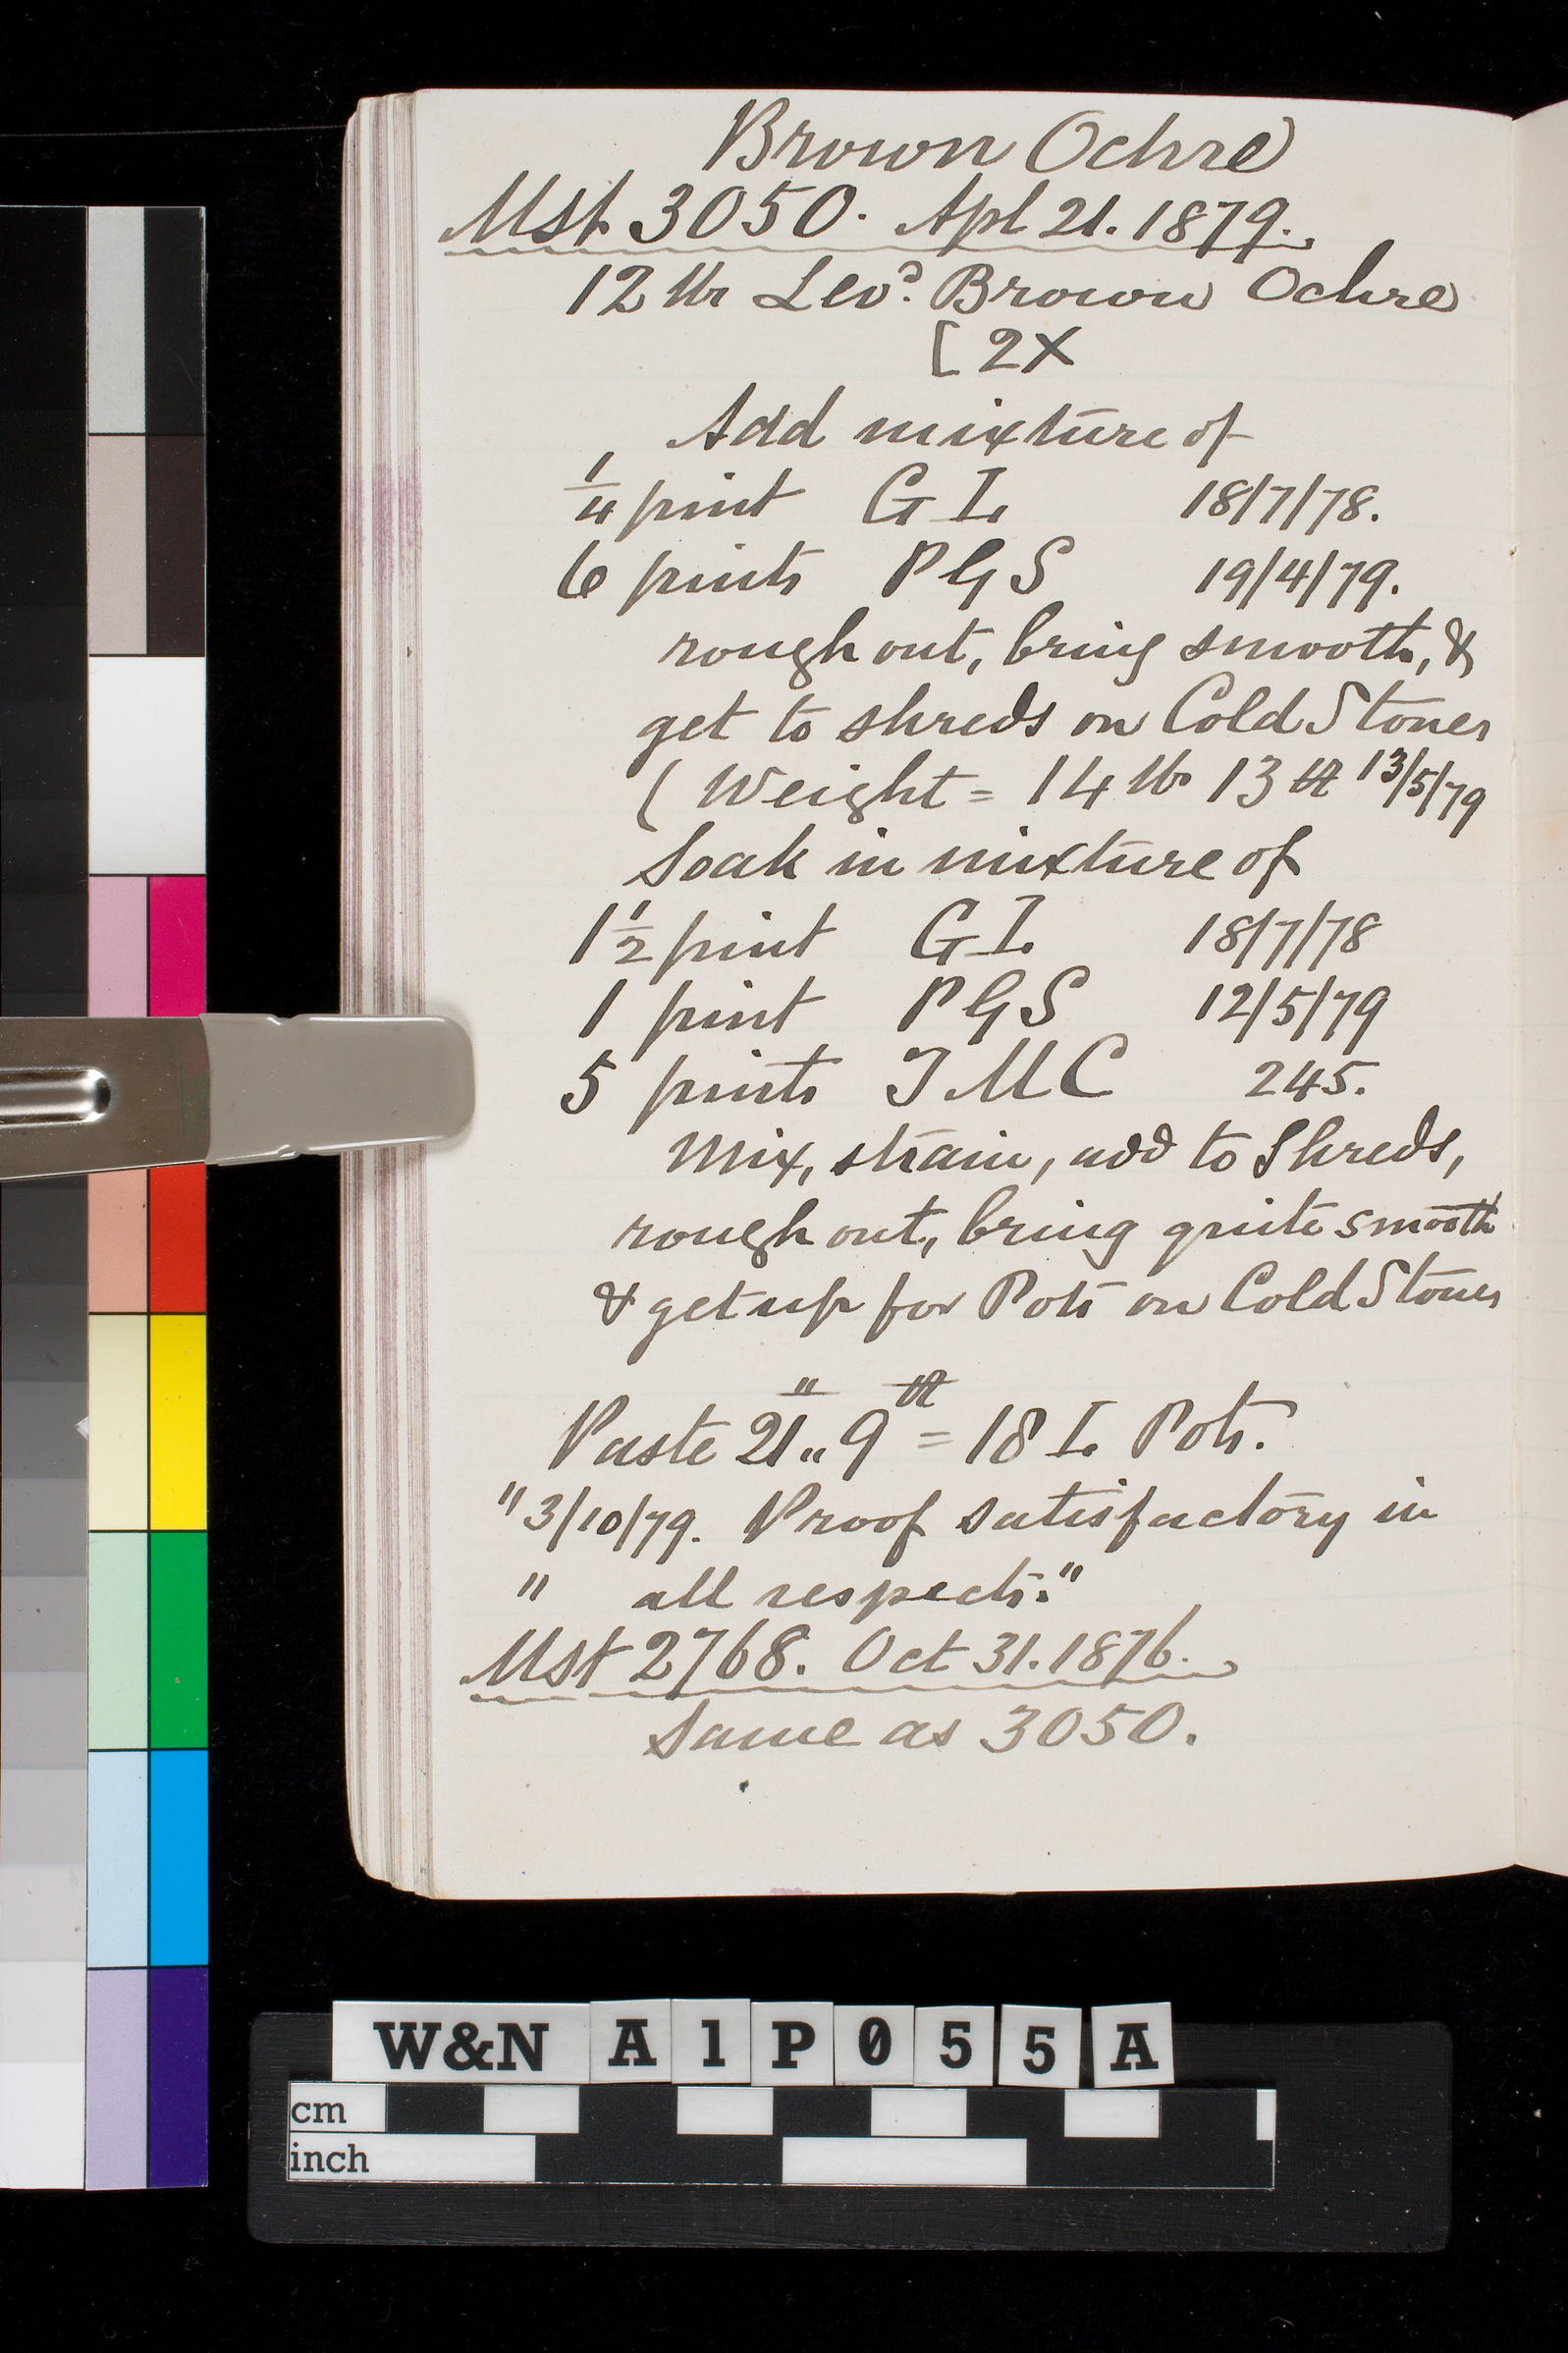 Brown Ochre
Mst 3050. Apl 21. 1879.
12 lb Levd. Brown Ochre
[ 2X
Add mixture of
1/4 pint G I. 18/7/78.
6 pints P G S 19/4/79.
rough out, bring smooth, &
get to shreds on Cold Stones
( Weight = 14 lb 13 13/5/79
Soak in mixture of
1 1/2 pint G I. 18/7/78
1 pint P G S 12/5/79
5 pints T M C 245.
Mix, strain, add to Shreds,
rough out, bring quite smooth
& get up for Pots on Cold Stones
Paste 21 „ 9 = 18 I. Pots.
" 3/10/79. Proof satisfactory in
" all respects."
Mst 2768. Oct 31. 1876.
Same as 3050.
W&N A1P055A
cm
inch